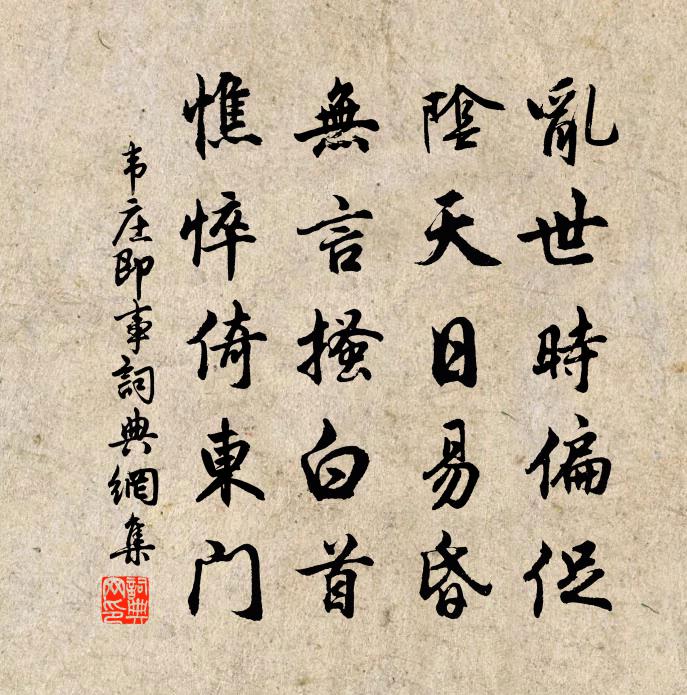 亂世時偏促
陰天日易昏
無言搔白首
憔悴倚東門
韦庄即事詞典網集
詞典網印